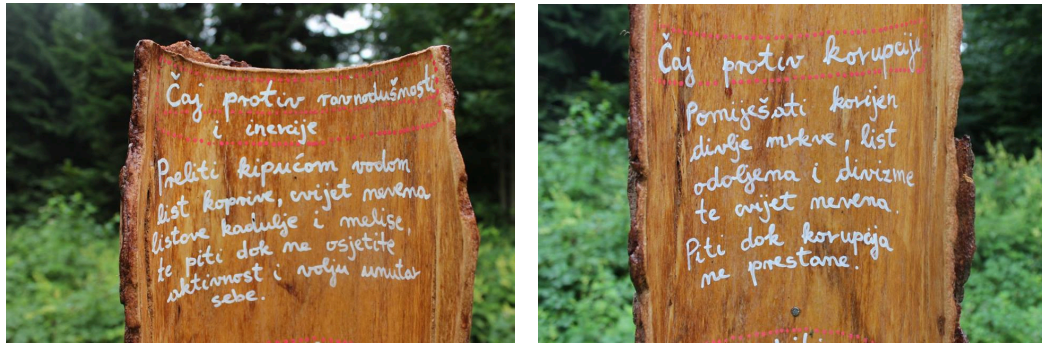 Čaj protiv ravnodušnosti
i inercije
Preliti kipućom vodom
list koprive, cvijet nevena
listove kadulje i melise,
te piti dok ne osjetite
aktivnost i volju unutar
sebe.
Čaj protiv korupcije
Pomiješati korijen
divlje mrkve, list
odoljena i divizme
te cvijet nevena.
Piti dok korupcija
ne prestane.